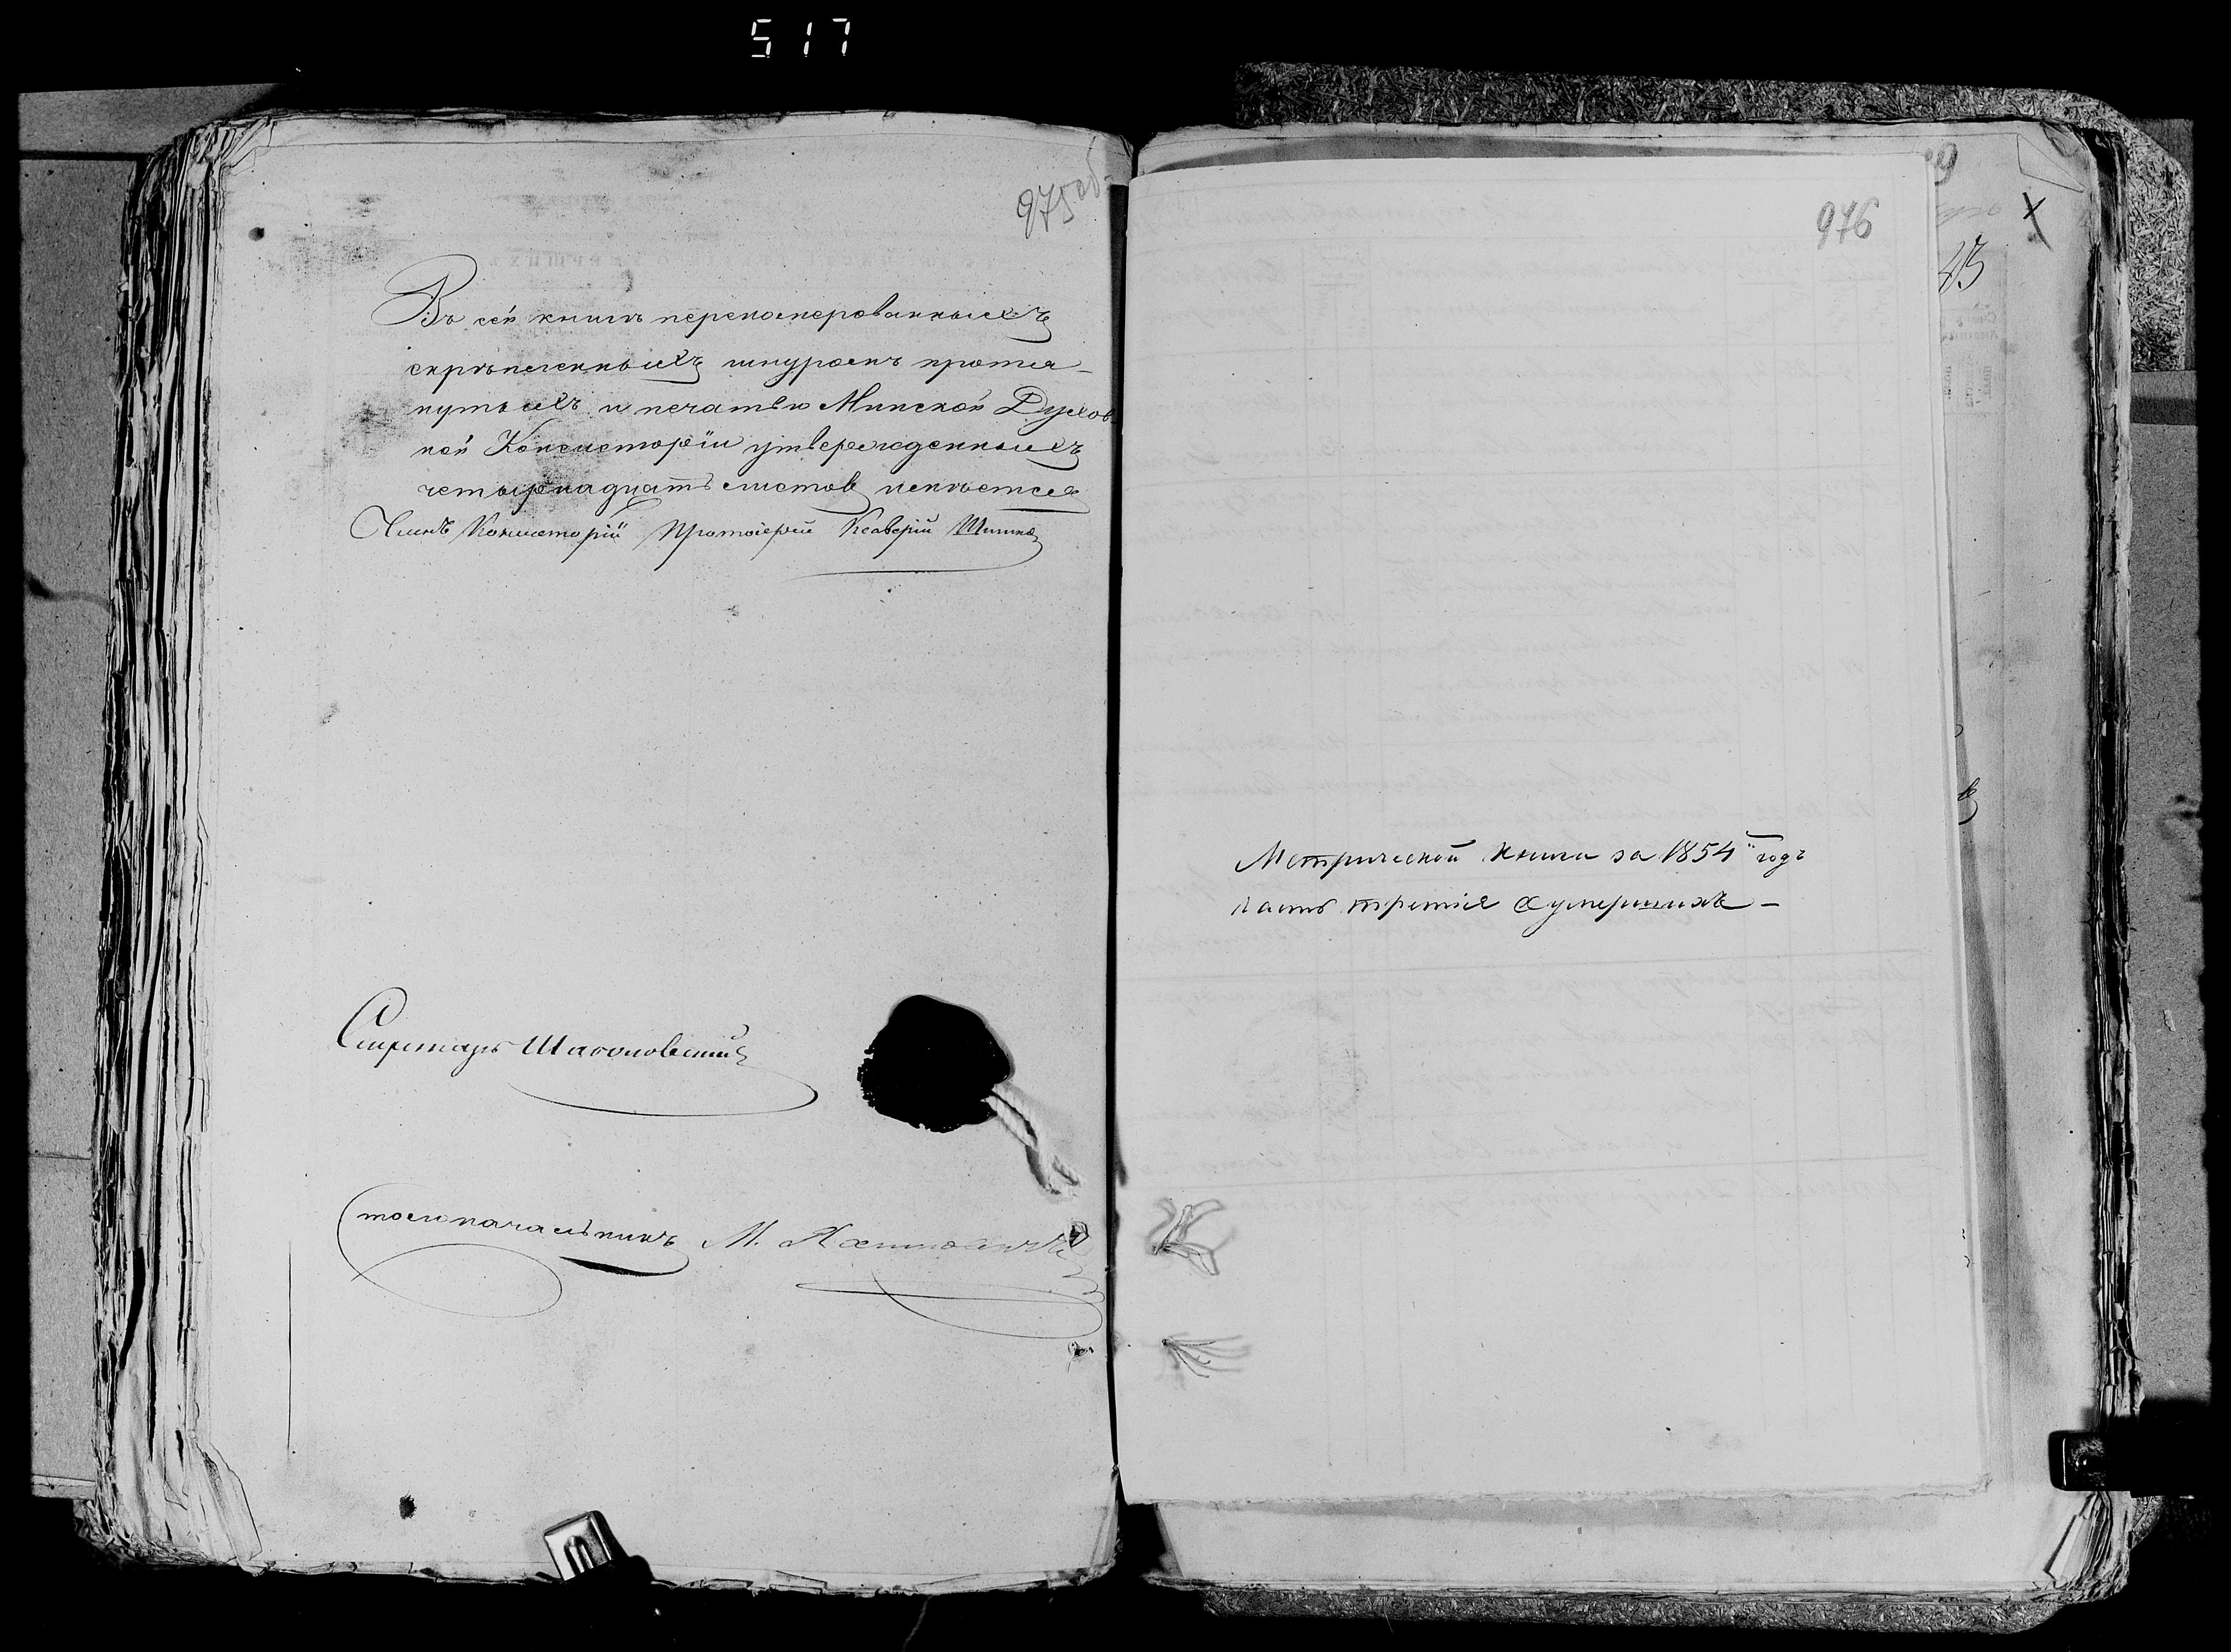 517
975об
Въ сей книгѣ перенумерованныхъ
скрѣпленныхъ шнуромъ протя-
нутыхъ и печатью Минской Духов
ной Консисторіи утвержденныхъ
четырнадцать листовъ имѣется
Членъ Консисторіи Протоіерей Ксаверій
Секретарь
Столоначальникъ М.
976
Метрической книги за 1854 годъ
часть третія О умершихъ –